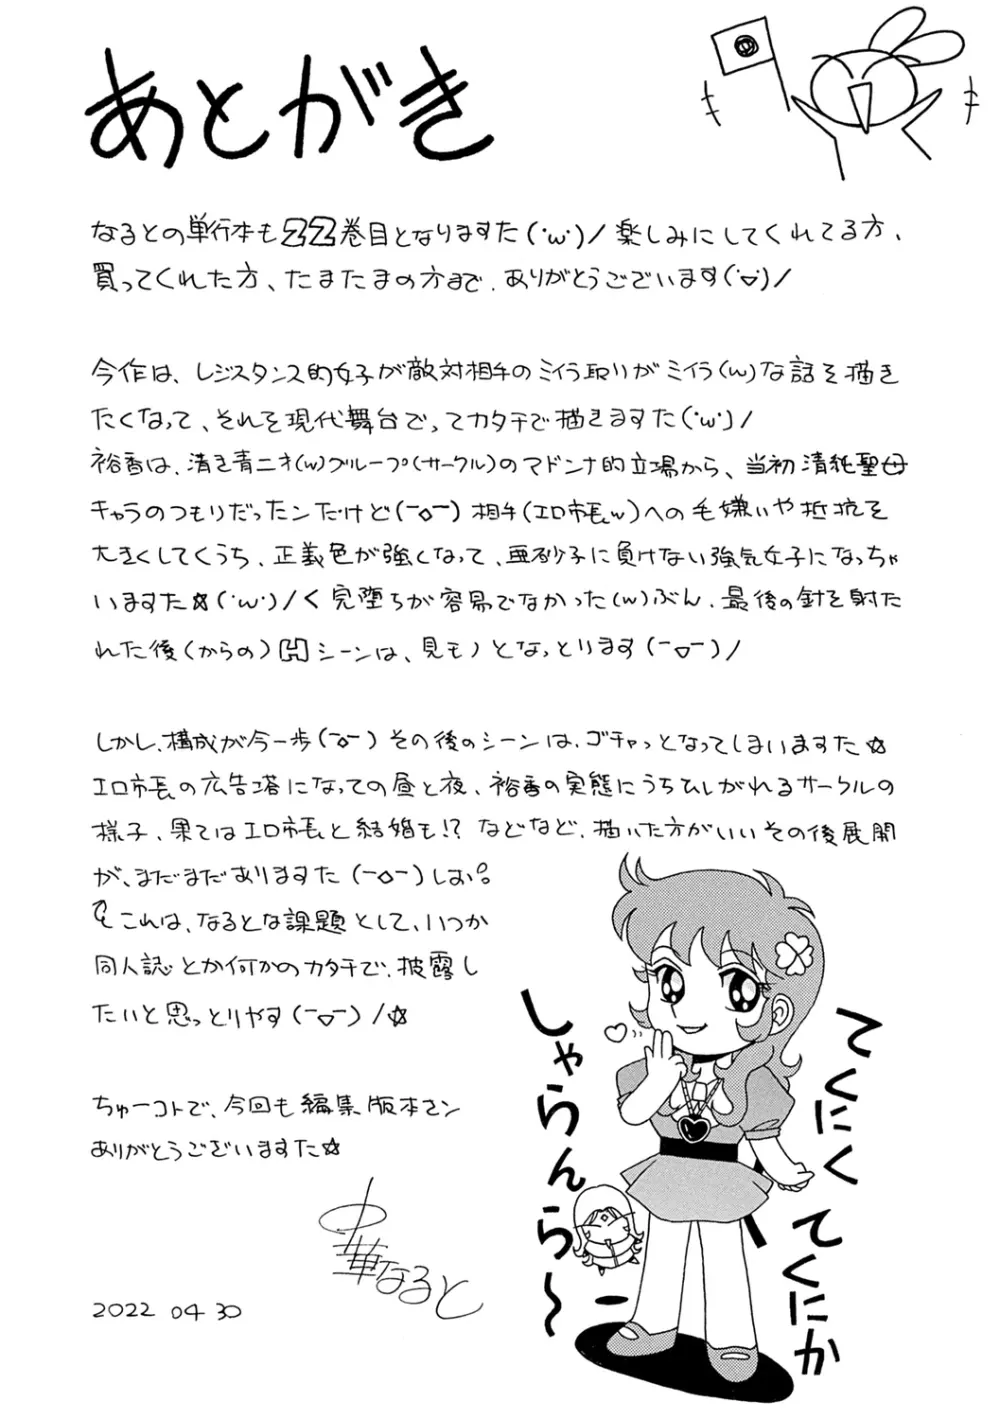 あとがき
なるとの単行本も22巻目となりますた(･ω･)/楽しみにしてくれてる方、
買ってくれた方、たまたまの方まで、ありがとうございます(･▽･)/
今作は、レジスタンス的女子が敵対相手のミイラ取りがミイラ(w)な話を描き
たくなって、それを現代舞台でってカタチで描きますた(･ω･)/
裕香は、清き青二才(w)グループ(サークル)のマドンナ的立場から、当初清純聖母
キャラのつもりだったンだけど(ー◇ー)相手(エロ市長w)への毛嫌いや抵抗を
大きくしてくうち、正義色が強くなって、亜砂子に負けない強気女子になっちゃ
いますた☆(･ω･)/く完堕ちが容易でなかった(w)ぶん、最後の針を射た
れた後(からの)Hシーンは、見モノとなっとります(ー▽ー)/
しかし、構成が今一歩(ー◇ー)その後のシーンは、ゴチャっとなってしまいますた☆
エロ市長の広告塔になっての昼と夜、裕香の実態にうちひしがれるサークルの
様子、果てはエロ市長と結婚も!?などなど、描いた方がいいその後展開
が、まだまだありますた(ー◇ー)しお。
これは、なるとな課題として、いつか
同人誌とか何かのカタチで、披露し
たいと思っとりやす(ー▽ー)/☆
ちゅーコトで、今回も編集版本サン
ありがとうございますた☆
中華なると
2022 04 30
てくにくてくにか
しゃらんら〜